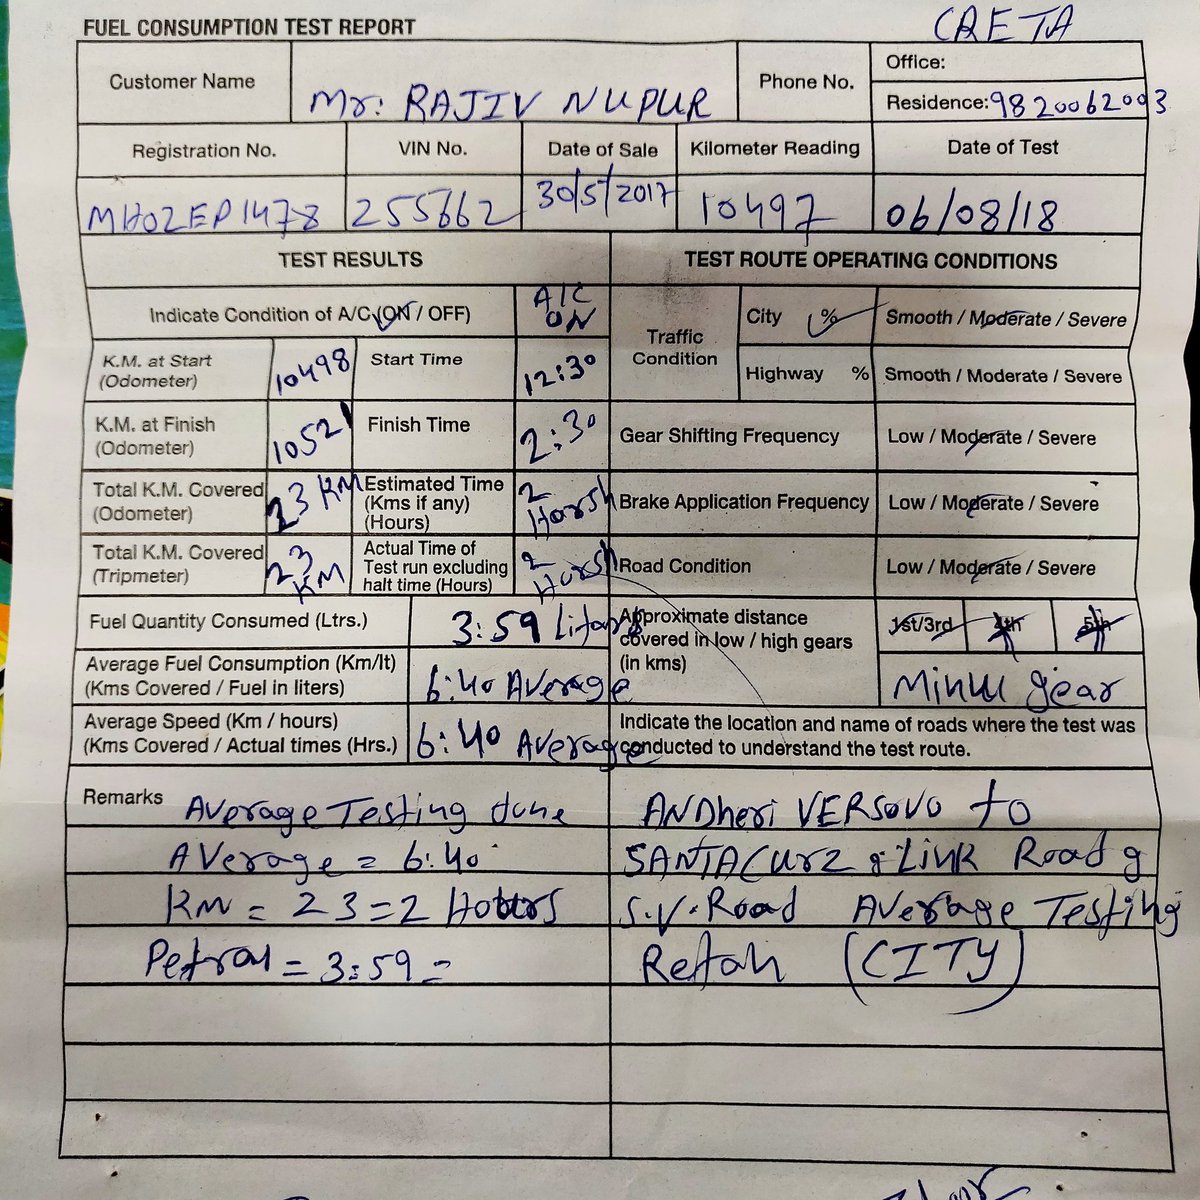 CRETA
FUEL CONSUMPTION TEST REPORT
Customer Name
Mr: RAJIV NUPUR
Phone No.
Office:
Residence: 9820062003
Registration No. VIN No. Date of Sale Kilometer Reading Date of Test
MH02EP1478 255662 30/5/2017 10497 06/08/18
TEST RESULTS
TEST ROUTE OPERATING CONDITIONS
Indicate Condition of A/C (ON / OFF)
A/C
ON
K.M. at Start
(Odometer)
10498
Start Time
12:30
K.M. at Finish
(Odometer)
10521
Finish Time
2:30
Total K.M. Covered
(Odometer)
23 KM
Estimated Time
(Kms if any)
(Hours)
2
Total K.M. Covered
(Tripmeter)
23
KM
Actual Time of
Test run excluding
halt time (Hours)
2
Fuel Quantity Consumed (Ltrs.)
3:59
Average Fuel Consumption (Km/lt)
(Kms Covered / Fuel in liters)
6:40 Average
Average Speed (Km / hours)
(Kms Covered / Actual times (Hrs.)
6:40 Average
Traffic
Condition
City %
Smooth / Moderate / Severe
Highway %
Smooth / Moderate / Severe
Gear Shifting Frequency
Low / Moderate / Severe
Brake Application Frequency
Low / Moderate / Severe
Road Condition
Low / Moderate / Severe
Approximate distance
covered in low / high gears
(in kms)
1st/3rd 4th 5th
gear
Indicate the location and name of roads where the test was
conducted to understand the test route.
Remarks
Average Testing done
Average = 6:40
KM = 23 = 2 Hours
Petral = 3:59 =
ANDheri VERSOVO to
SANTACURZ g Link Road g
S.V. Road Average Testing
(CITY)